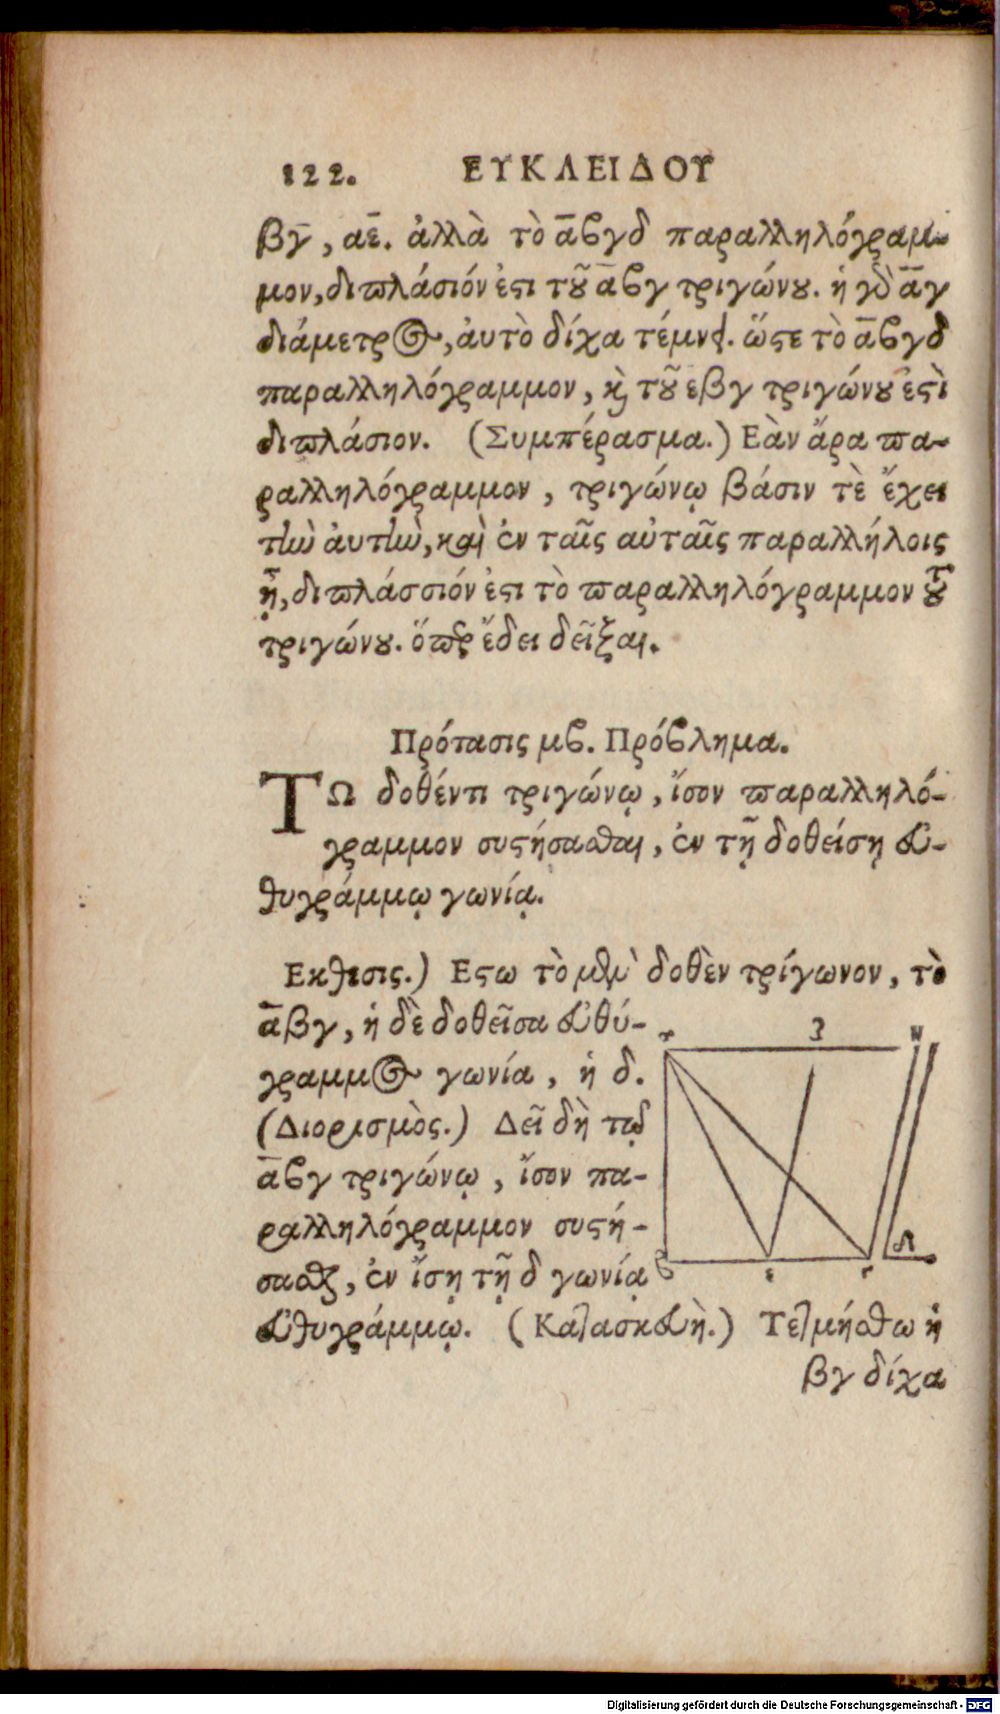 122. ΕΥΚΛΕΙΔΟΥ
βγ, αε. ἀλλὰ τὸ αβγδ παραλληλόγραμ-
μον, διπλάσιόν ἐϛι τοῦ αβγ τριγώνου. ἡ γὸ αγ
διάμετρος, ἀυτὸ δίχα τέμνει. ὥϛε τὸ αβγδ
παραλληλόγραμμον, ϗ τοῦ εβγ τριγώνου ἐϛὶ
διπλάσιον. (Συμπέρασμα.) Εὰν ἄρα πα-
ραλληλόγραμμον, τριγώνῳ βάσιν τὲ ἔχει
τὴν ἀυτὴν, καὶ ἐν ταῖς αὐταῖς παραλλήλοις
ᾖ, διπλάσσιόν ἐϛι τὸ παραλληλόγραμμον τοῦ
τριγώνου. ὅπερ ἔδει δεῖξαι.
Πρότασις μβ. Πρόβλημα.
ΤΩ δοθέντι τριγώνῳ, ἴσον παραλληλό-
γραμμον συϛήσασθαι, ἐν τῇ δοθείσῃ εὐ-
θυγράμμῳ γωνίᾳ.
Εκθεσις.) Εϛω τὸ μὲν δοθὲν τρίγωνον, τὸ
αβγ, ἡ δὲ δοθεῖσα εὐθύ-
γραμμος γωνία, ἡ δ.
(Διορισμὸς.) Δεῖ δὴ τῷ
αβγ τριγώνῳ, ἴσον πα-
ραλληλόγραμμον συϛή-
σασθαι, ἐν ἴσῃ τῇ δ γωνίᾳ
εὐθυγράμμῳ. (Κατασκευὴ.) Τετμήσθω ἡ
βγ δίχα
Digitalisierung gefördert durch die Deutsche Forschungsgemeinschaft - DFG